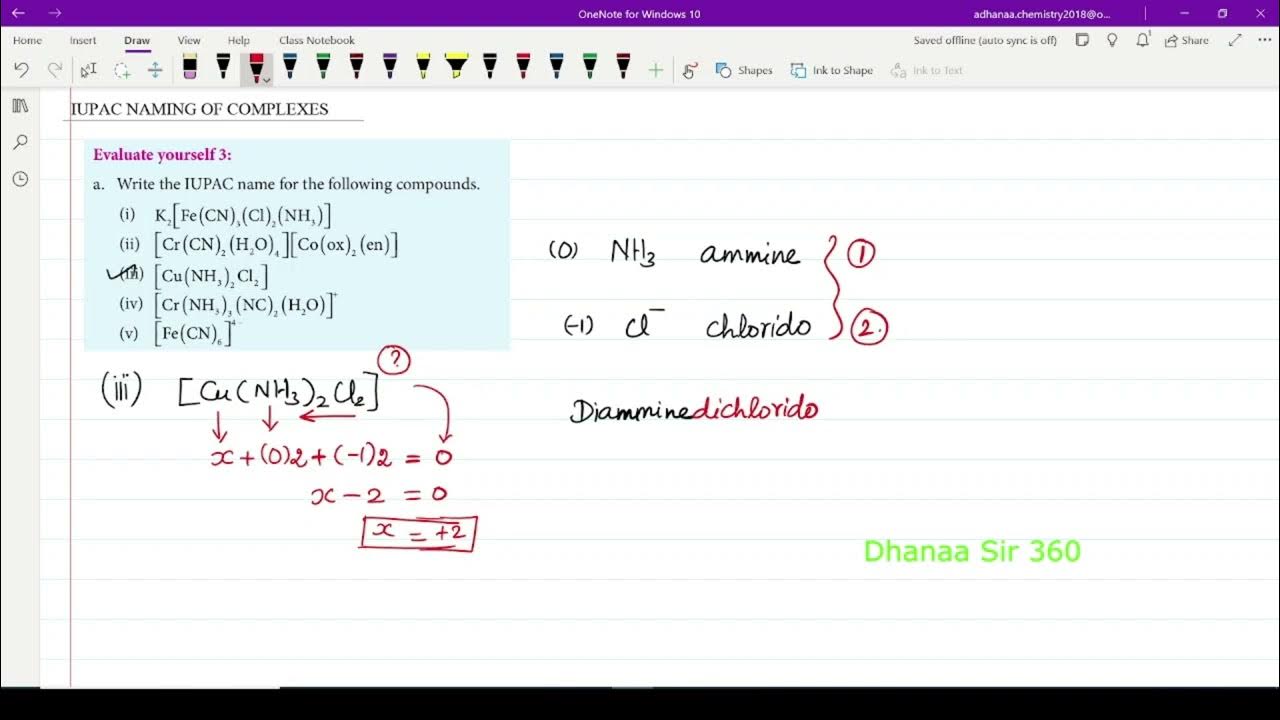 OneNote for Windows 10
adhanaa.chemistry2018@o...
Home Insert Draw View Help Class Notebook
Saved offline (auto sync is off) Share
Shapes Ink to Shape Ink to Text
IUPAC NAMING OF COMPLEXES
Evaluate yourself 3:
a. Write the IUPAC name for the following compounds.
(i) K₂[Fe(CN)₃(Cl)₂(NH₃)]
(ii) [Cr(CN)₂(H₂O)₄][Co(ox)₂(en)]
(iii) [Cu(NH₃)₂Cl₂]
(iv) [Cr(NH₃)₃(NC)₂(H₂O)]⁺
(v) [Fe(CN)₆]⁴⁻
(0) NH₃ ammine ①
(-1) Cl⁻ chlorido ②
(iii) [Cu(NH₃)₂Cl₂] ?
x + (0)2 + (-1)2 = 0
x - 2 = 0
x = +2
Diamminedichlorido
Dhanaa Sir 360